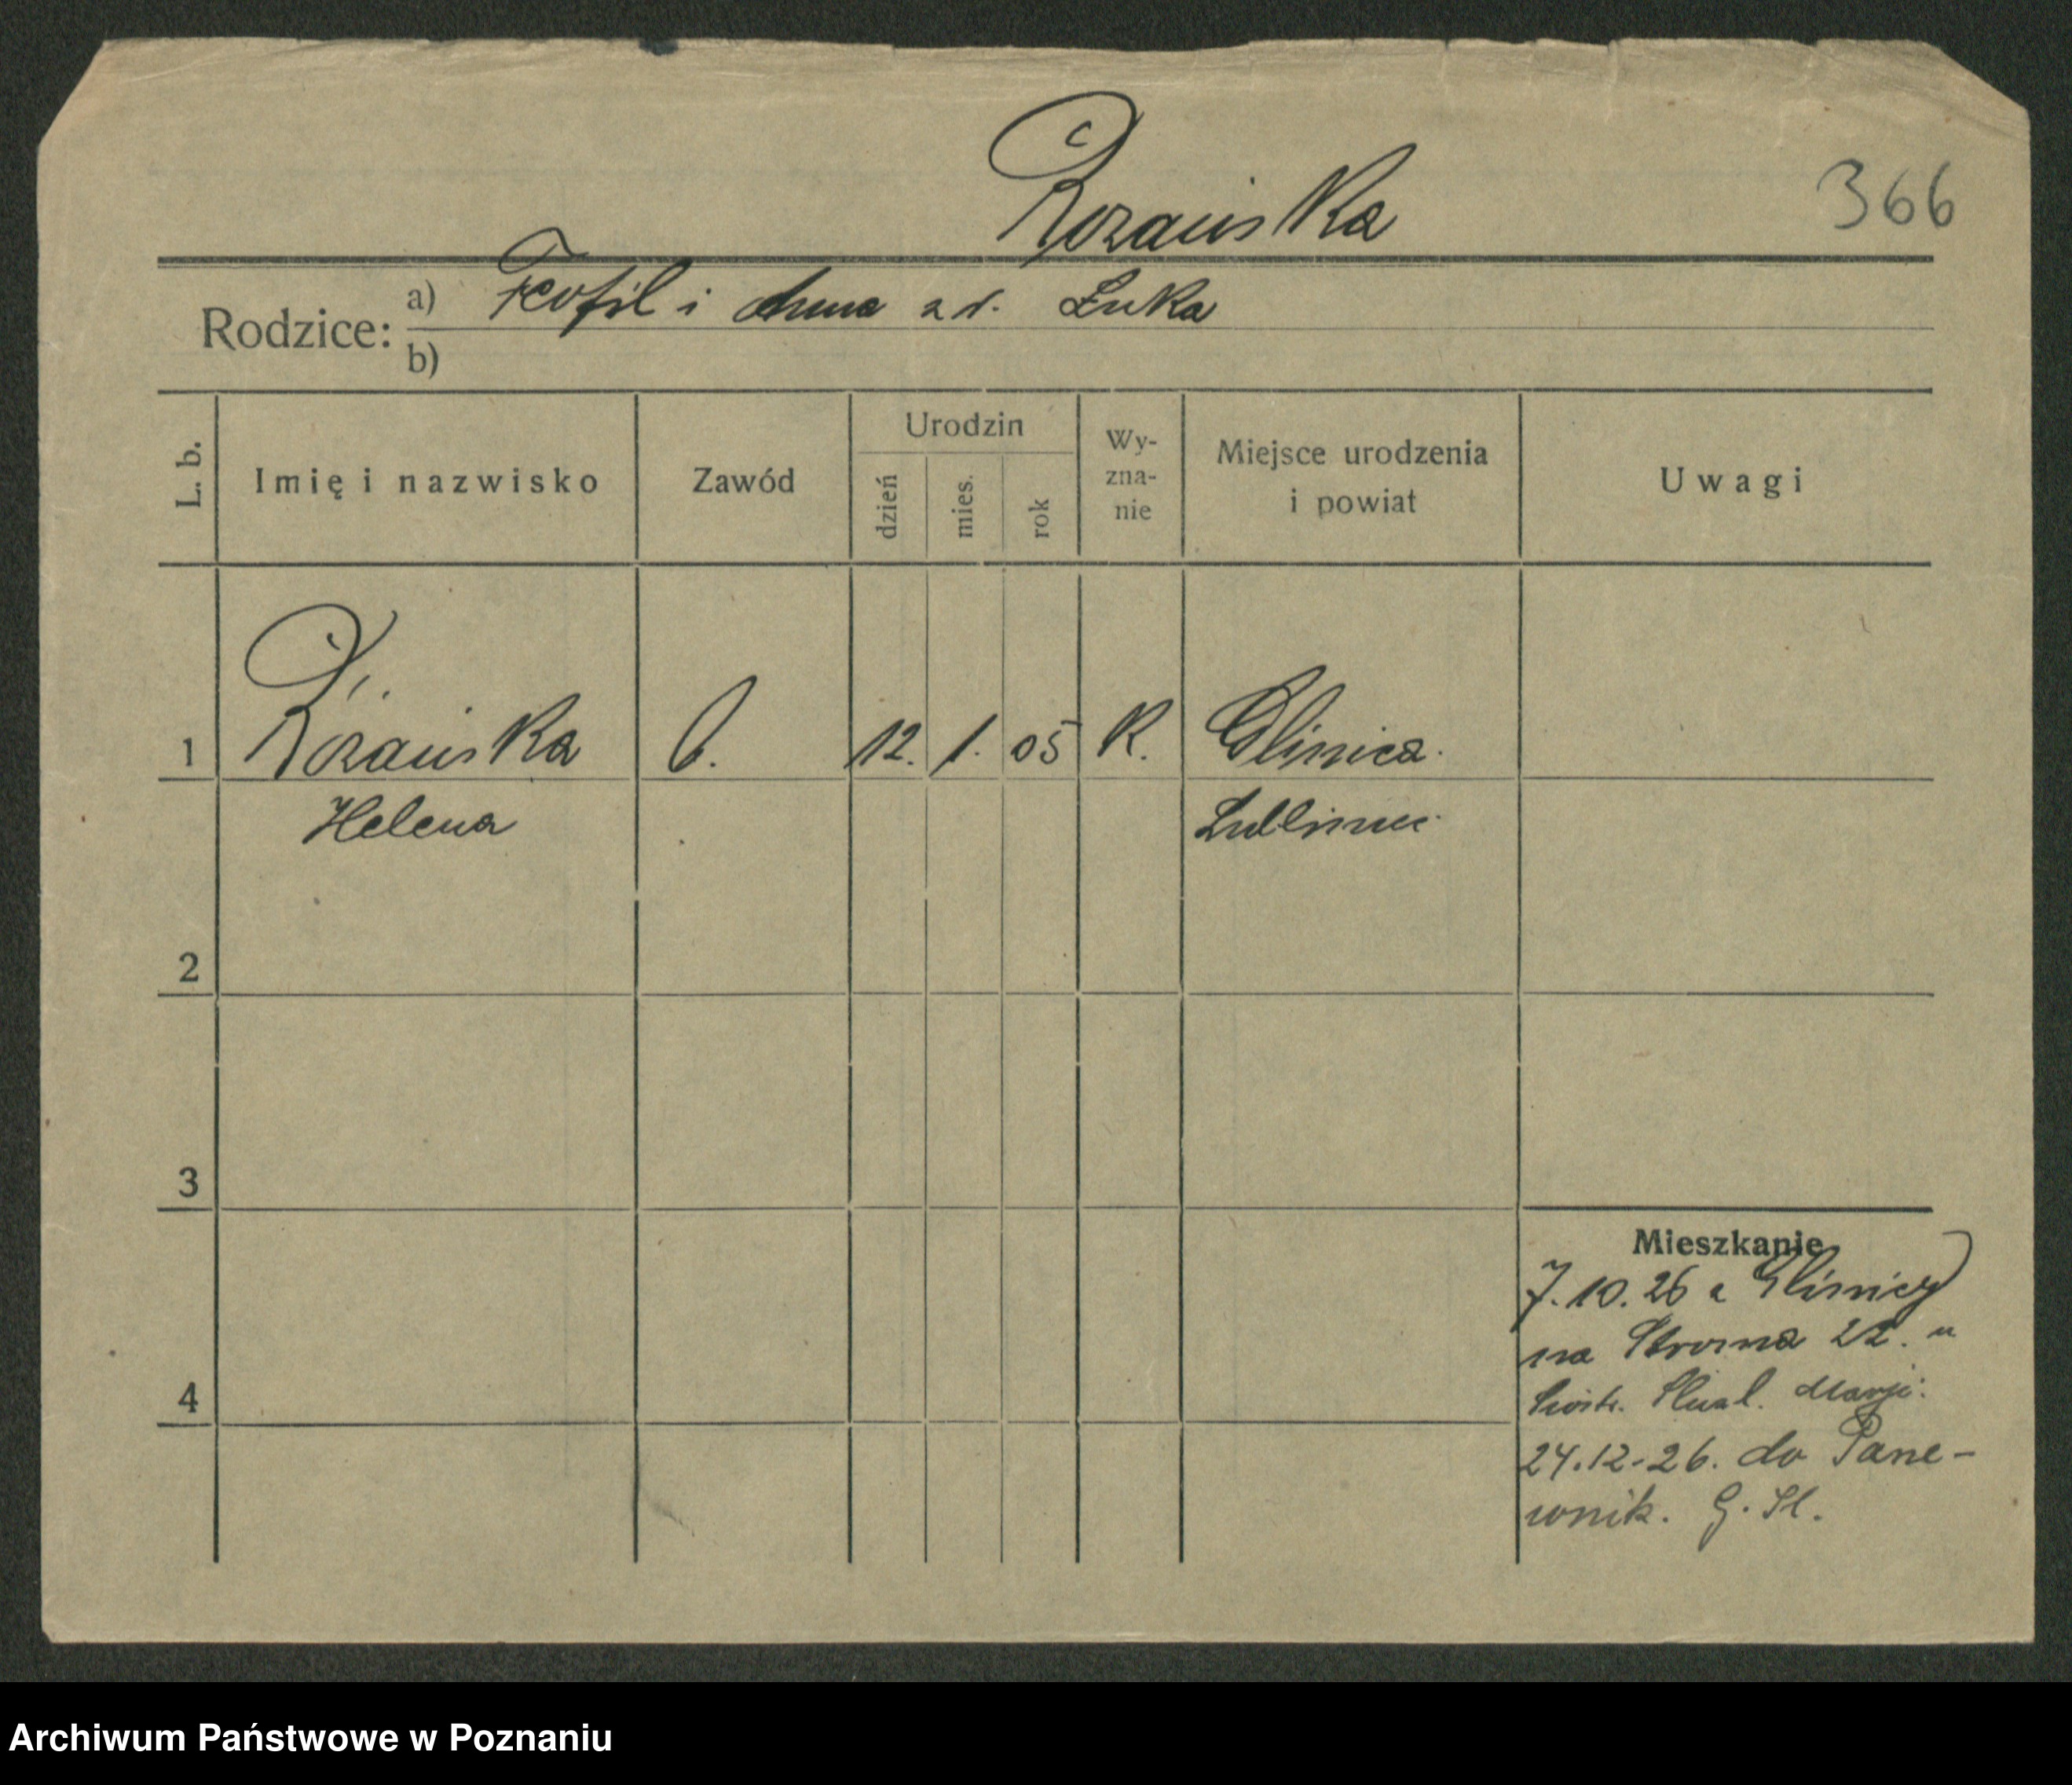 Rozańska
366
Rodzice: a) Teofil i Anna z d. Łuka
b)
L. b. Imię i nazwisko Zawód Urodzin dzień mies. rok Wy-zna-nie Miejsce urodzenia i powiat Uwagi
1 Rozańska 6. 12. 1. 05 K. Glinica.
Helena Lubliniec
2
3
Mieszkanie
7.10.26 z Glinicy
na Stroma 22. u
Siostr. Służ. Marji.
4
24.12.26. do Pane-
wnik. G. Śl.
Archiwum Państwowe w Poznaniu